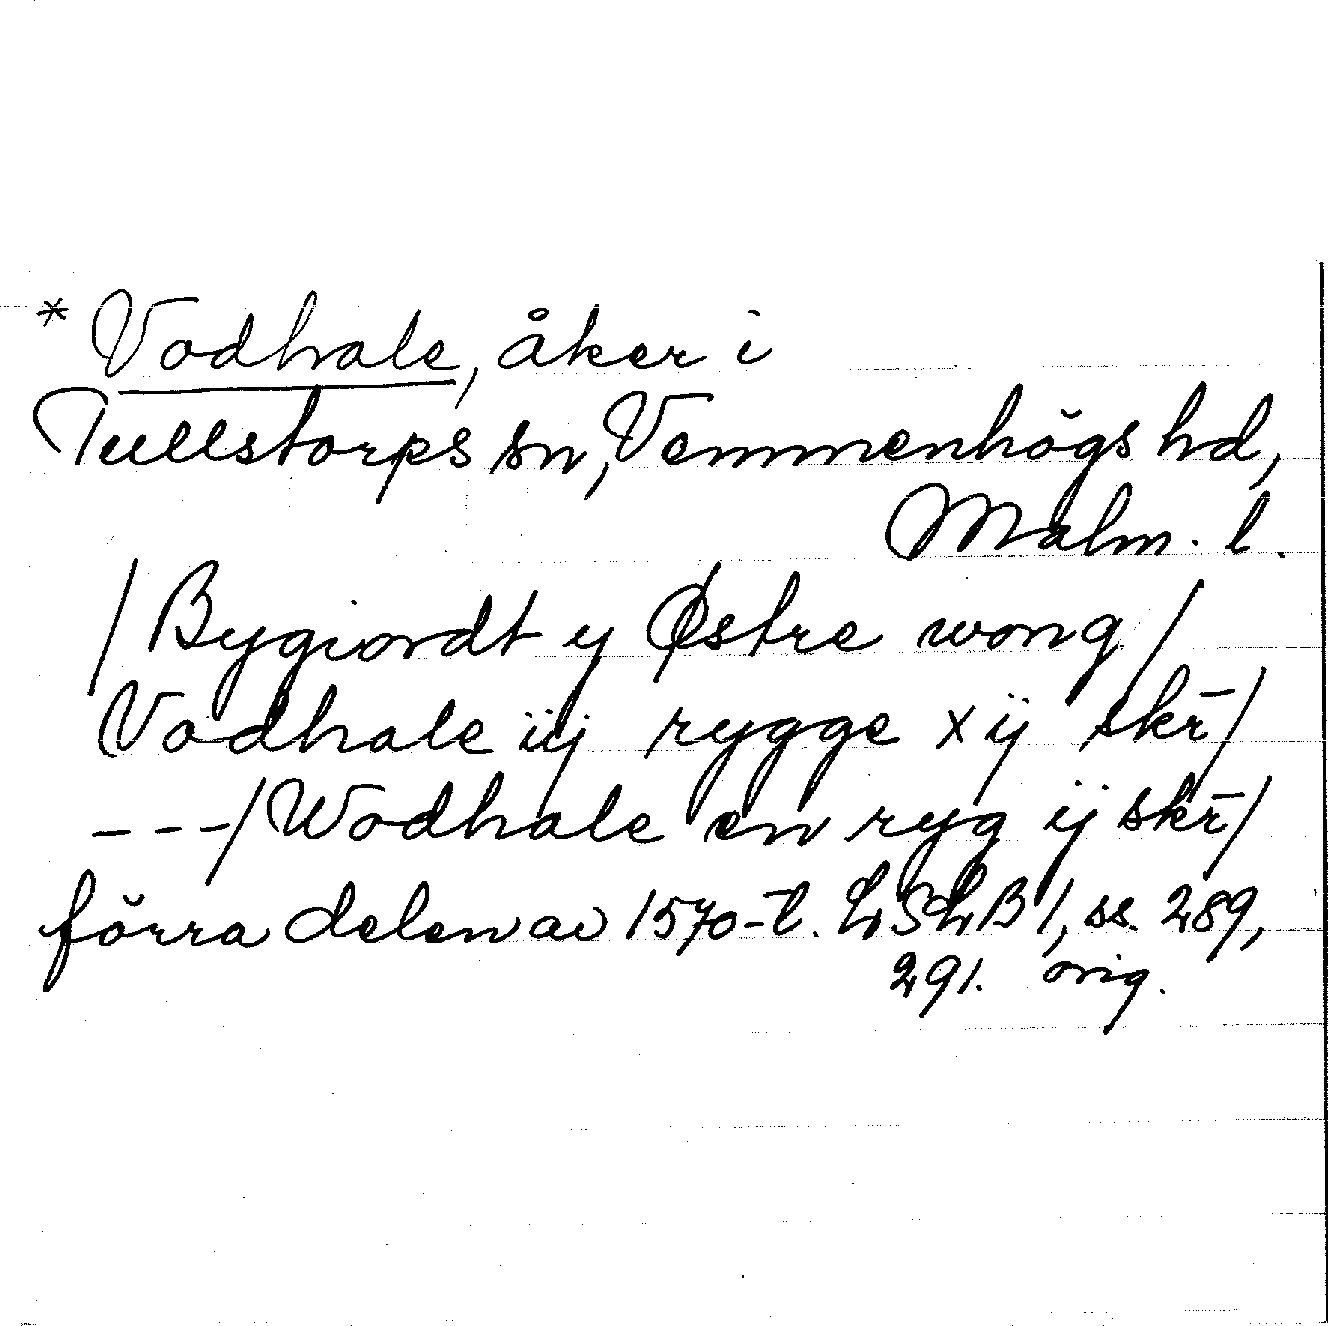 * Vodhale, åker i
Tullstorps sn, Vemmenhögs hd,
Malm. l.
/ Bygiordt y Østre wong /
Vodhale iij rygge xij skr̄ /
---/ Wodhale en ryg ij skr̄ /
förra delen av 1570-t. LSLB 1, ss. 289,
291. orig.